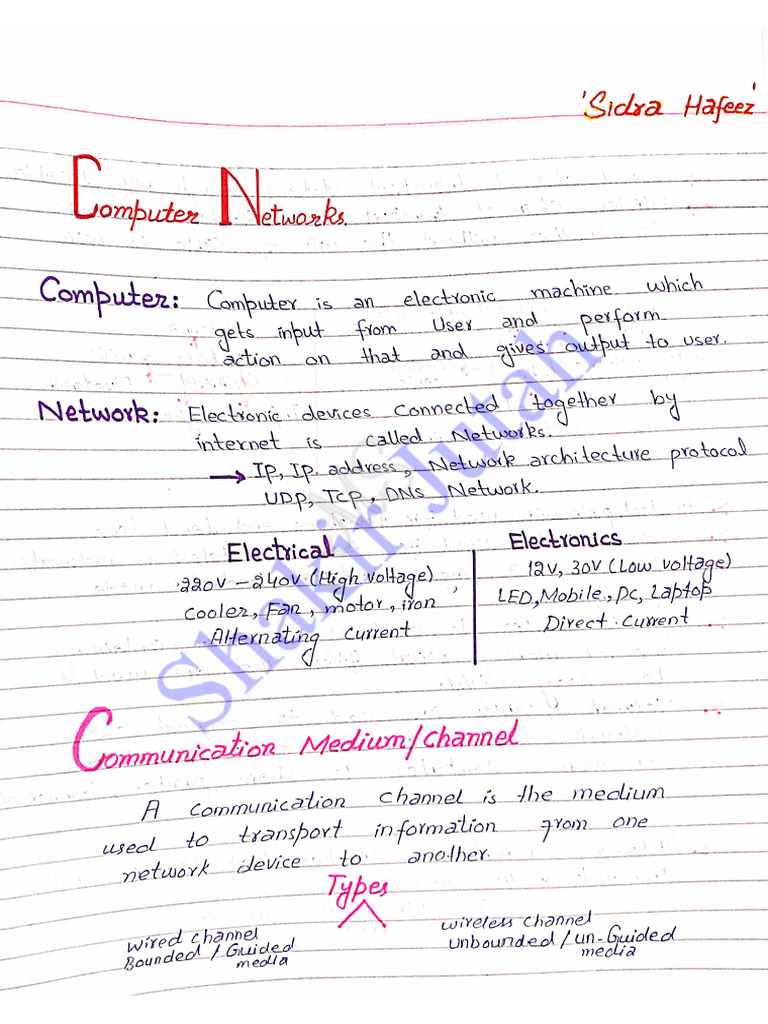 'Sidra Hafeez'
Computer Networks.
Computer: Computer is an electronic machine which
gets input from User and perform
action on that and gives output to user.
Network: Electronic devices connected together by
internet is called Networks.
→ Ip, Ip address, Network architecture protocol
UDP, TCP, DNS Network.
Electrical
220V – 240V (High Voltage)
Cooler, Fan, motor, iron
Alternating Current
Electronics
12V, 30V (Low voltage)
LED, Mobile, PC, Laptop
Direct Current
Communication Medium/Channel
A communication channel is the medium
used to transport information from one
network device to another.
Types
wired channel
Bounded / Guided
media
wireless channel
unbounded / un-Guided
media
Shakir Jutah